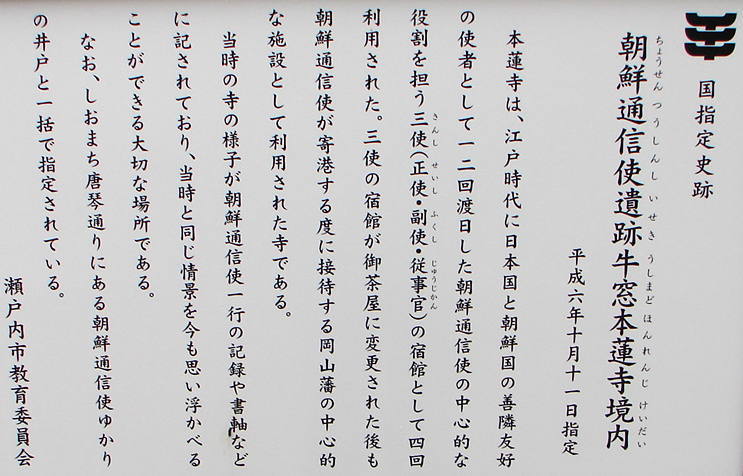 国指定史跡
朝鮮通信使遺跡牛窓本蓮寺境内
ちょうせん つうしんし いせき うしまど ほんれんじ けいだい
平成六年十月十一日指定
本蓮寺は、江戸時代に日本国と朝鮮国の善隣友好
の使者として一二回渡日した朝鮮通信使の中心的な
役割を担う三使(正使・副使・従事官)の宿館として四回
さんし せいし ふくし じゅうじかん
利用された。三使の宿館が御茶屋に変更された後も
朝鮮通信使が寄港する度に接待する岡山藩の中心的
な施設として利用された寺である。
当時の寺の様子が朝鮮通信使一行の記録や書軸など
に記されており、当時と同じ情景を今も思い浮かべる
ことができる大切な場所である。
なお、しおまち唐琴通りにある朝鮮通信使ゆかり
の井戸と一括で指定されている。
瀬戸内市教育委員会